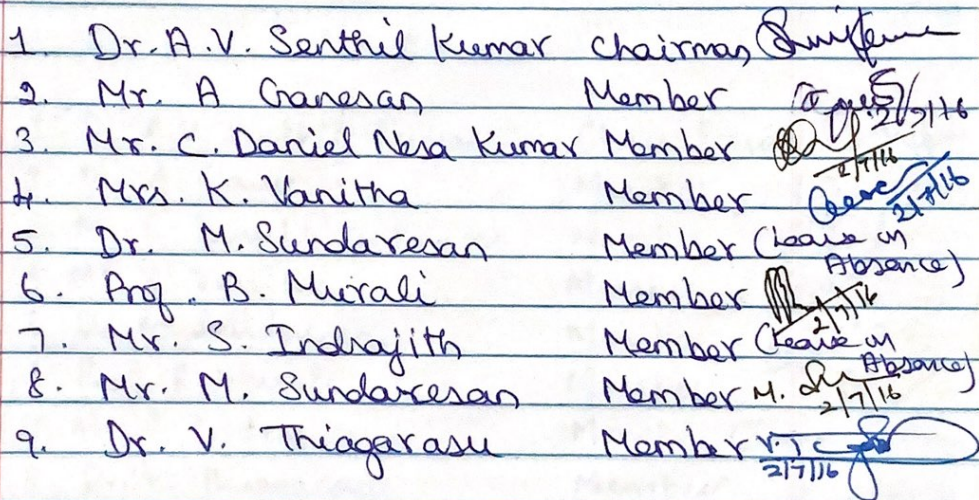 1 Dr. A. V. Senthil Kumar Chairman
2. Mr. A Ganesan Member 2/7/16
3. Mr. C. Daniel Nesa Kumar Member 2/7/16
4. Mrs. K. Vanitha Member 2/7/16
5. Dr. M. Sundaresan Member (Leave in Absence)
6. Prof. B. Murali Member 2/7/16
7. Mr. S. Indrajith Member (Leave in Absence)
8. Mr. M. Sundaresan Member M. 2/7/16
9. Dr. V. Thiagarasu Member 2/7/16